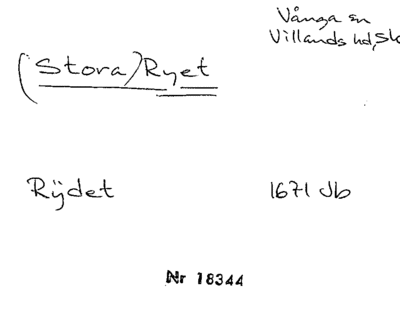 Vånga sn
Villands hd, Sk
(Stora) Ryet
Rÿdet 1671 Jb
Nr 18344